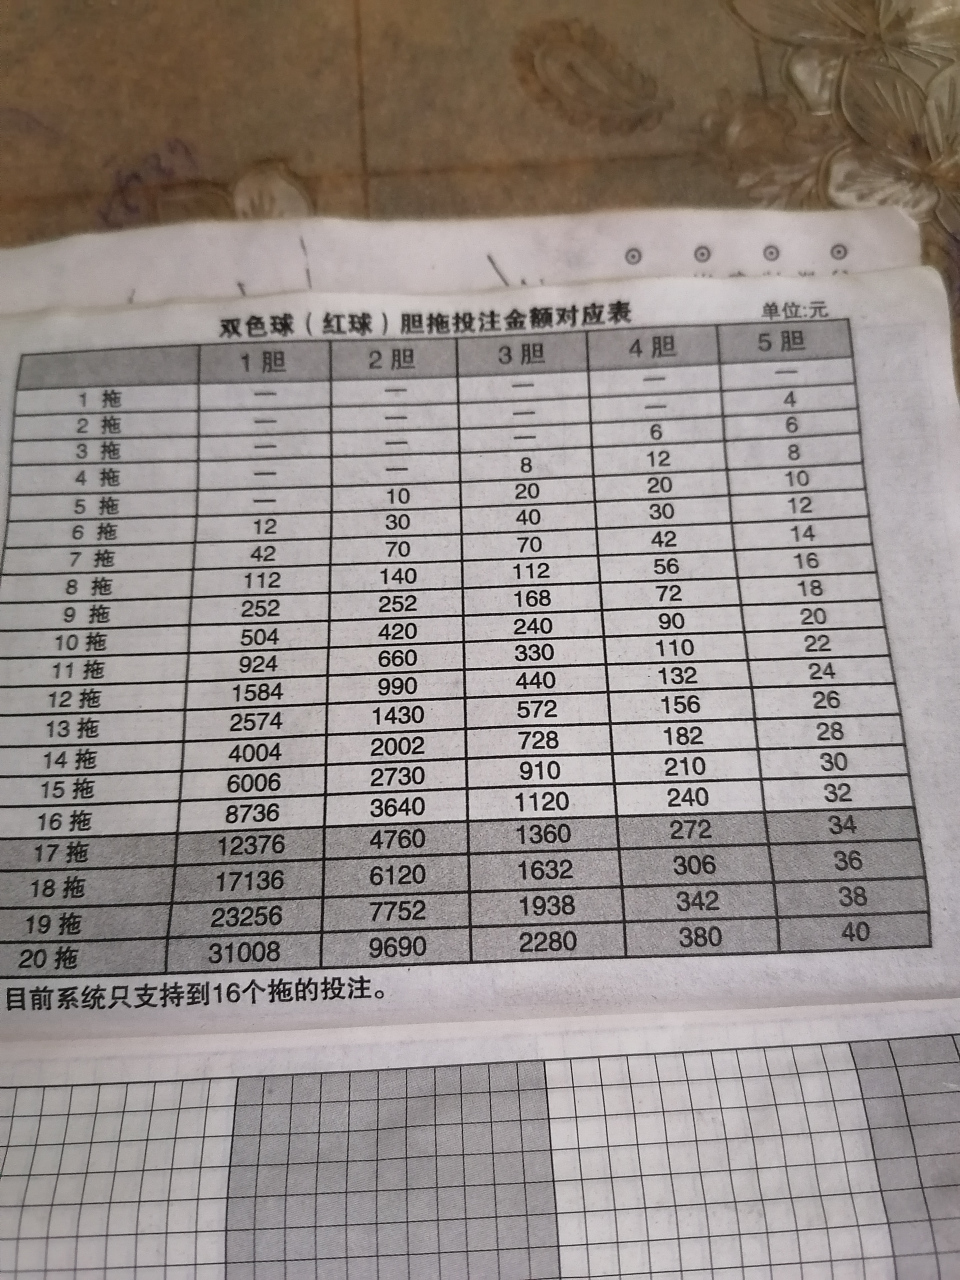 双色球（红球）胆拖投注金额对应表 单位:元
1 胆 2 胆 3 胆 4 胆 5 胆
1 拖 — — — — —
2 拖 — — — — 4
3 拖 — — — 6 6
4 拖 — — 8 12 8
5 拖 — 10 20 20 10
6 拖 12 30 40 30 12
7 拖 42 70 70 42 14
8 拖 112 140 112 56 16
9 拖 252 252 168 72 18
10 拖 504 420 240 90 20
11 拖 924 660 330 110 22
12 拖 1584 990 440 132 24
13 拖 2574 1430 572 156 26
14 拖 4004 2002 728 182 28
15 拖 6006 2730 910 210 30
16 拖 8736 3640 1120 240 32
17 拖 12376 4760 1360 272 34
18 拖 17136 6120 1632 306 36
19 拖 23256 7752 1938 342 38
20 拖 31008 9690 2280 380 40
目前系统只支持到16个拖的投注。